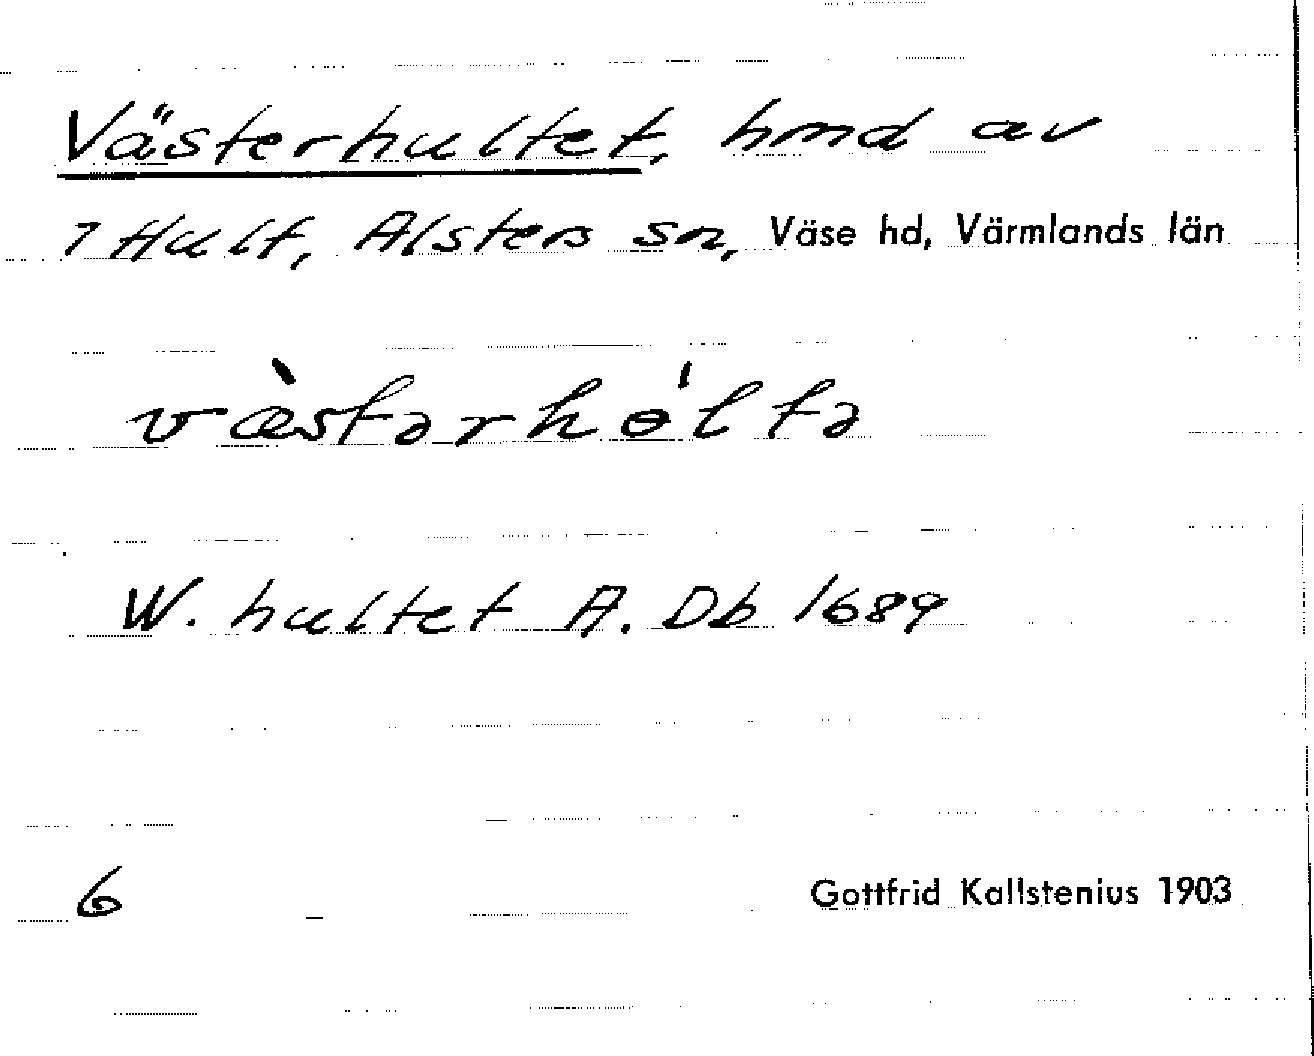 Västerhultet, hmd av
7 Hult, Alsters sn, Väse hd, Värmlands län
væ̀stərhɵ́ltə
W. hultet A. Db 1689
6
Gottfrid Kallstenius 1903